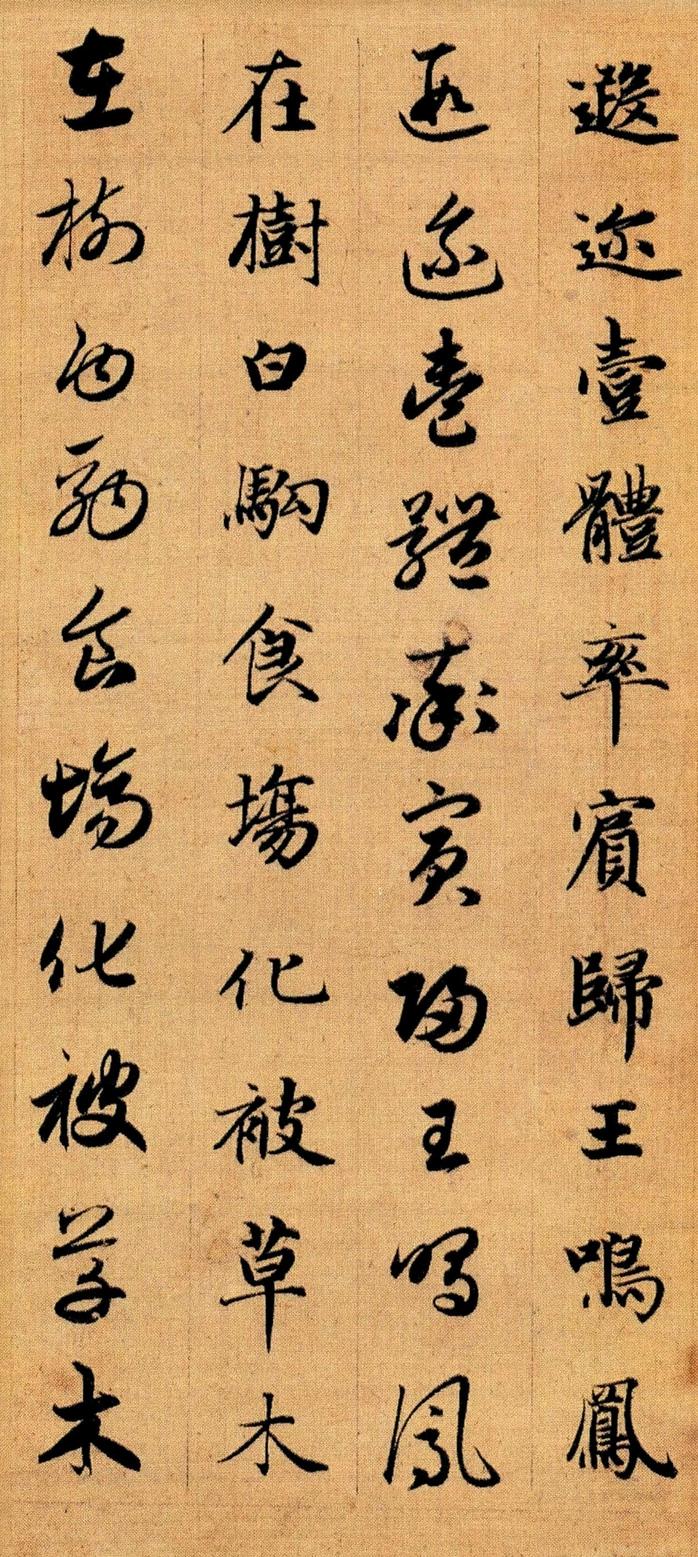 遐邇壹體率賓歸王鳴鳳
遐邇壹體率賓歸王鳴鳳
在樹白駒食場化被草木
在樹白駒食場化被草木